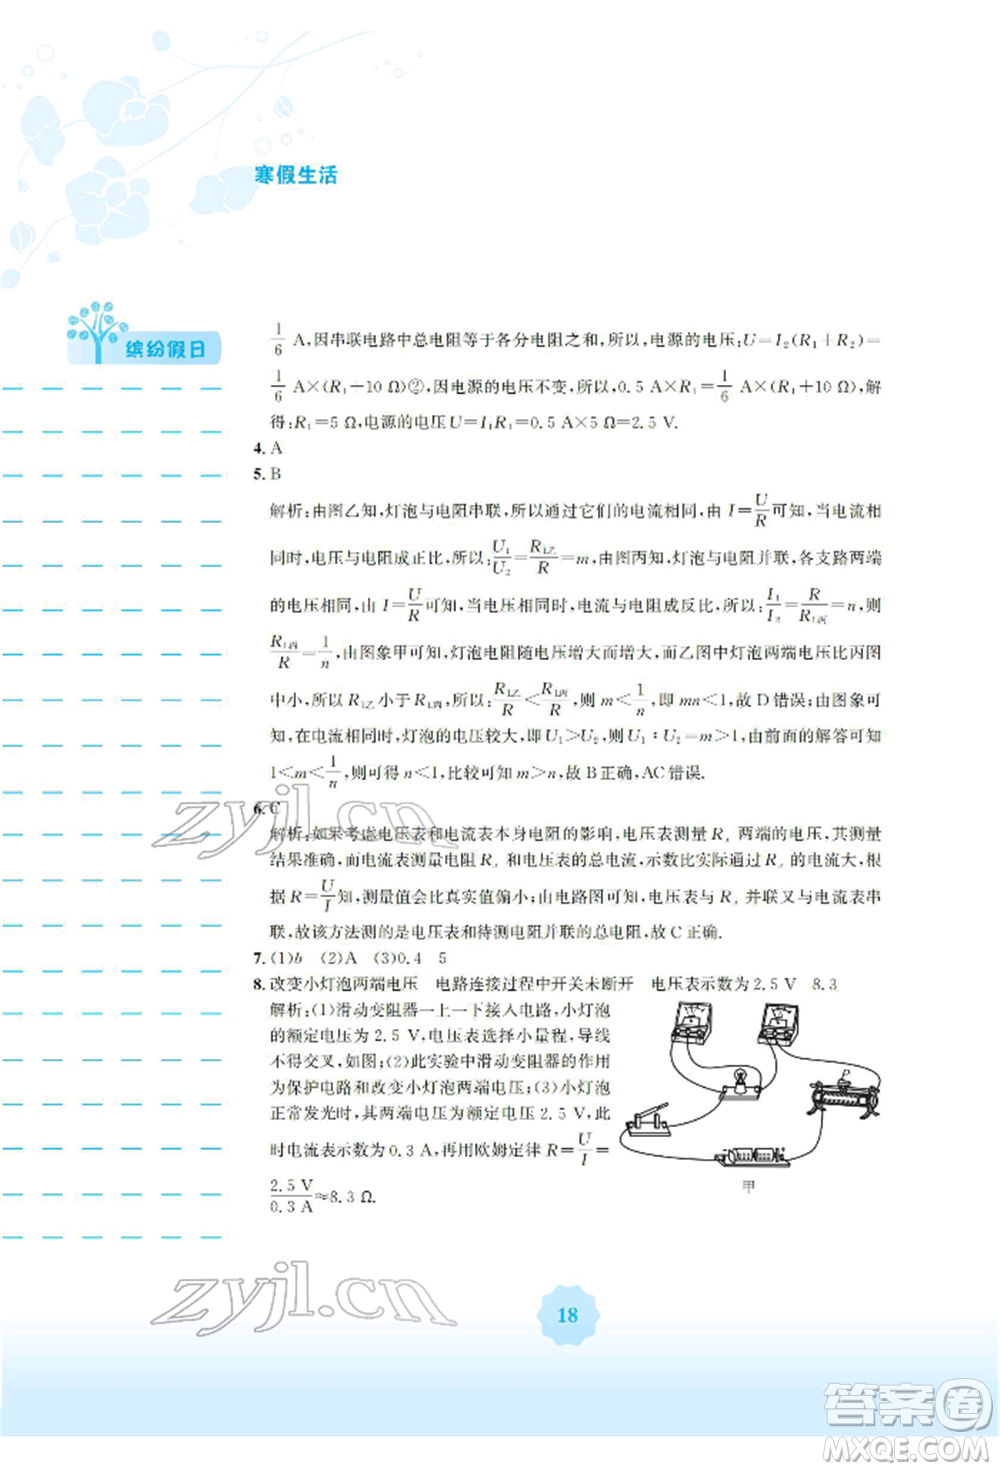 寒假生活
缤纷假日
1/6 A,因串联电路中总电阻等于各分电阻之和,所以,电源的电压:U=I₂(R₁+R₂)=
1/6 A×(R₁+10 Ω)②,因电源的电压不变,所以,0.5 A×R₁=1/6 A×(R₁+10 Ω),解
得:R₁=5 Ω,电源的电压U=I₁R₁=0.5 A×5 Ω=2.5 V.
4. A
5. B
解析:由图乙知,灯泡与电阻串联,所以通过它们的电流相同,由 I=U/R可知,当电流相
同时,电压与电阻成正比,所以:U₁/U₂=R₁乙/R=m,由图丙知,灯泡与电阻并联,各支路两端
的电压相同,由 I=U/R可知,当电压相同时,电流与电阻成反比,所以:I₁/I₂=R/R₁丙=n,则
R₁丙/R=1/n;由图象甲可知,灯泡电阻随电压增大而增大,而乙图中灯泡两端电压比丙图
中小,所以 R₁乙小于 R₁丙,所以:R₁乙/R<R₁丙/R,则 m<1/n,即 mn<1,故 D 错误;由图象可
知,在电流相同时,灯泡的电压较大,即 U₁>U₂,则 U₁∶U₂=m>1,由前面的解答可知
1<m<1/n,可得 n<1,比较可知 m>n,故 B 正确,AC 错误.
6. C
解析:如果考虑电压表和电流表本身电阻的影响,电压表测量 Rₓ 两端的电压,其测量
结果准确,而电流表测量电阻 Rₓ 和电压表的总电流,示数比实际通过 Rₓ 的电流大,根
据 R=U/I知,测量值会比真实值偏小;由电路图可知,电压表与 Rₓ 并联又与电流表串
联,故该方法测的是电压表和待测电阻并联的总电阻,故 C 正确.
7. (1)b (2)A (3)0.4 5
8. 改变小灯泡两端电压 电路连接过程中开关未断开 电压表示数为 2.5 V 8.3
解析:(1)滑动变阻器一上一下接入电路,小灯泡
的额定电压为 2.5 V,电压表选择小量程,导线
不得交叉,如图;(2)此实验中滑动变阻器的作用
为保护电路和改变小灯泡两端电压;(3)小灯泡
正常发光时,其两端电压为额定电压 2.5 V,此
时电流表示数为 0.3 A,再用欧姆定律 R=U/I=
2.5 V/0.3 A≈8.3 Ω.
P
甲
18
zyjl.cn
zyjl.cn
答案卷
MXQE.COM